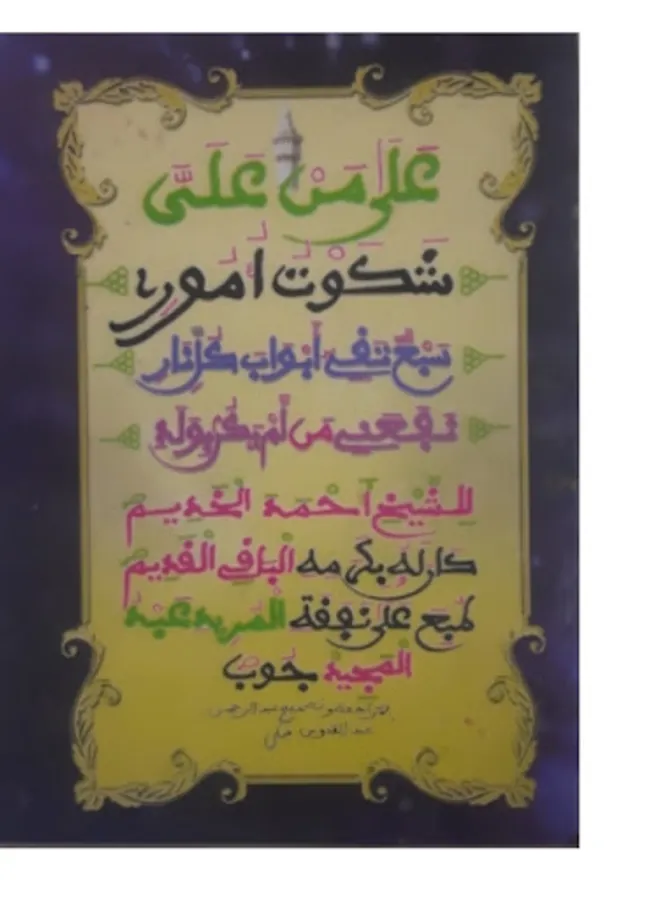 عَلَى مَنْ عَلَيَّ
شَكَوْتُ أُمُورِي
سبع تقي أبواب كل نار
من لم
للشيخ احمد الخديم
كان له بكرمه الباقي القديم
طبع على نفقة المريد عبد
المجيد جوب